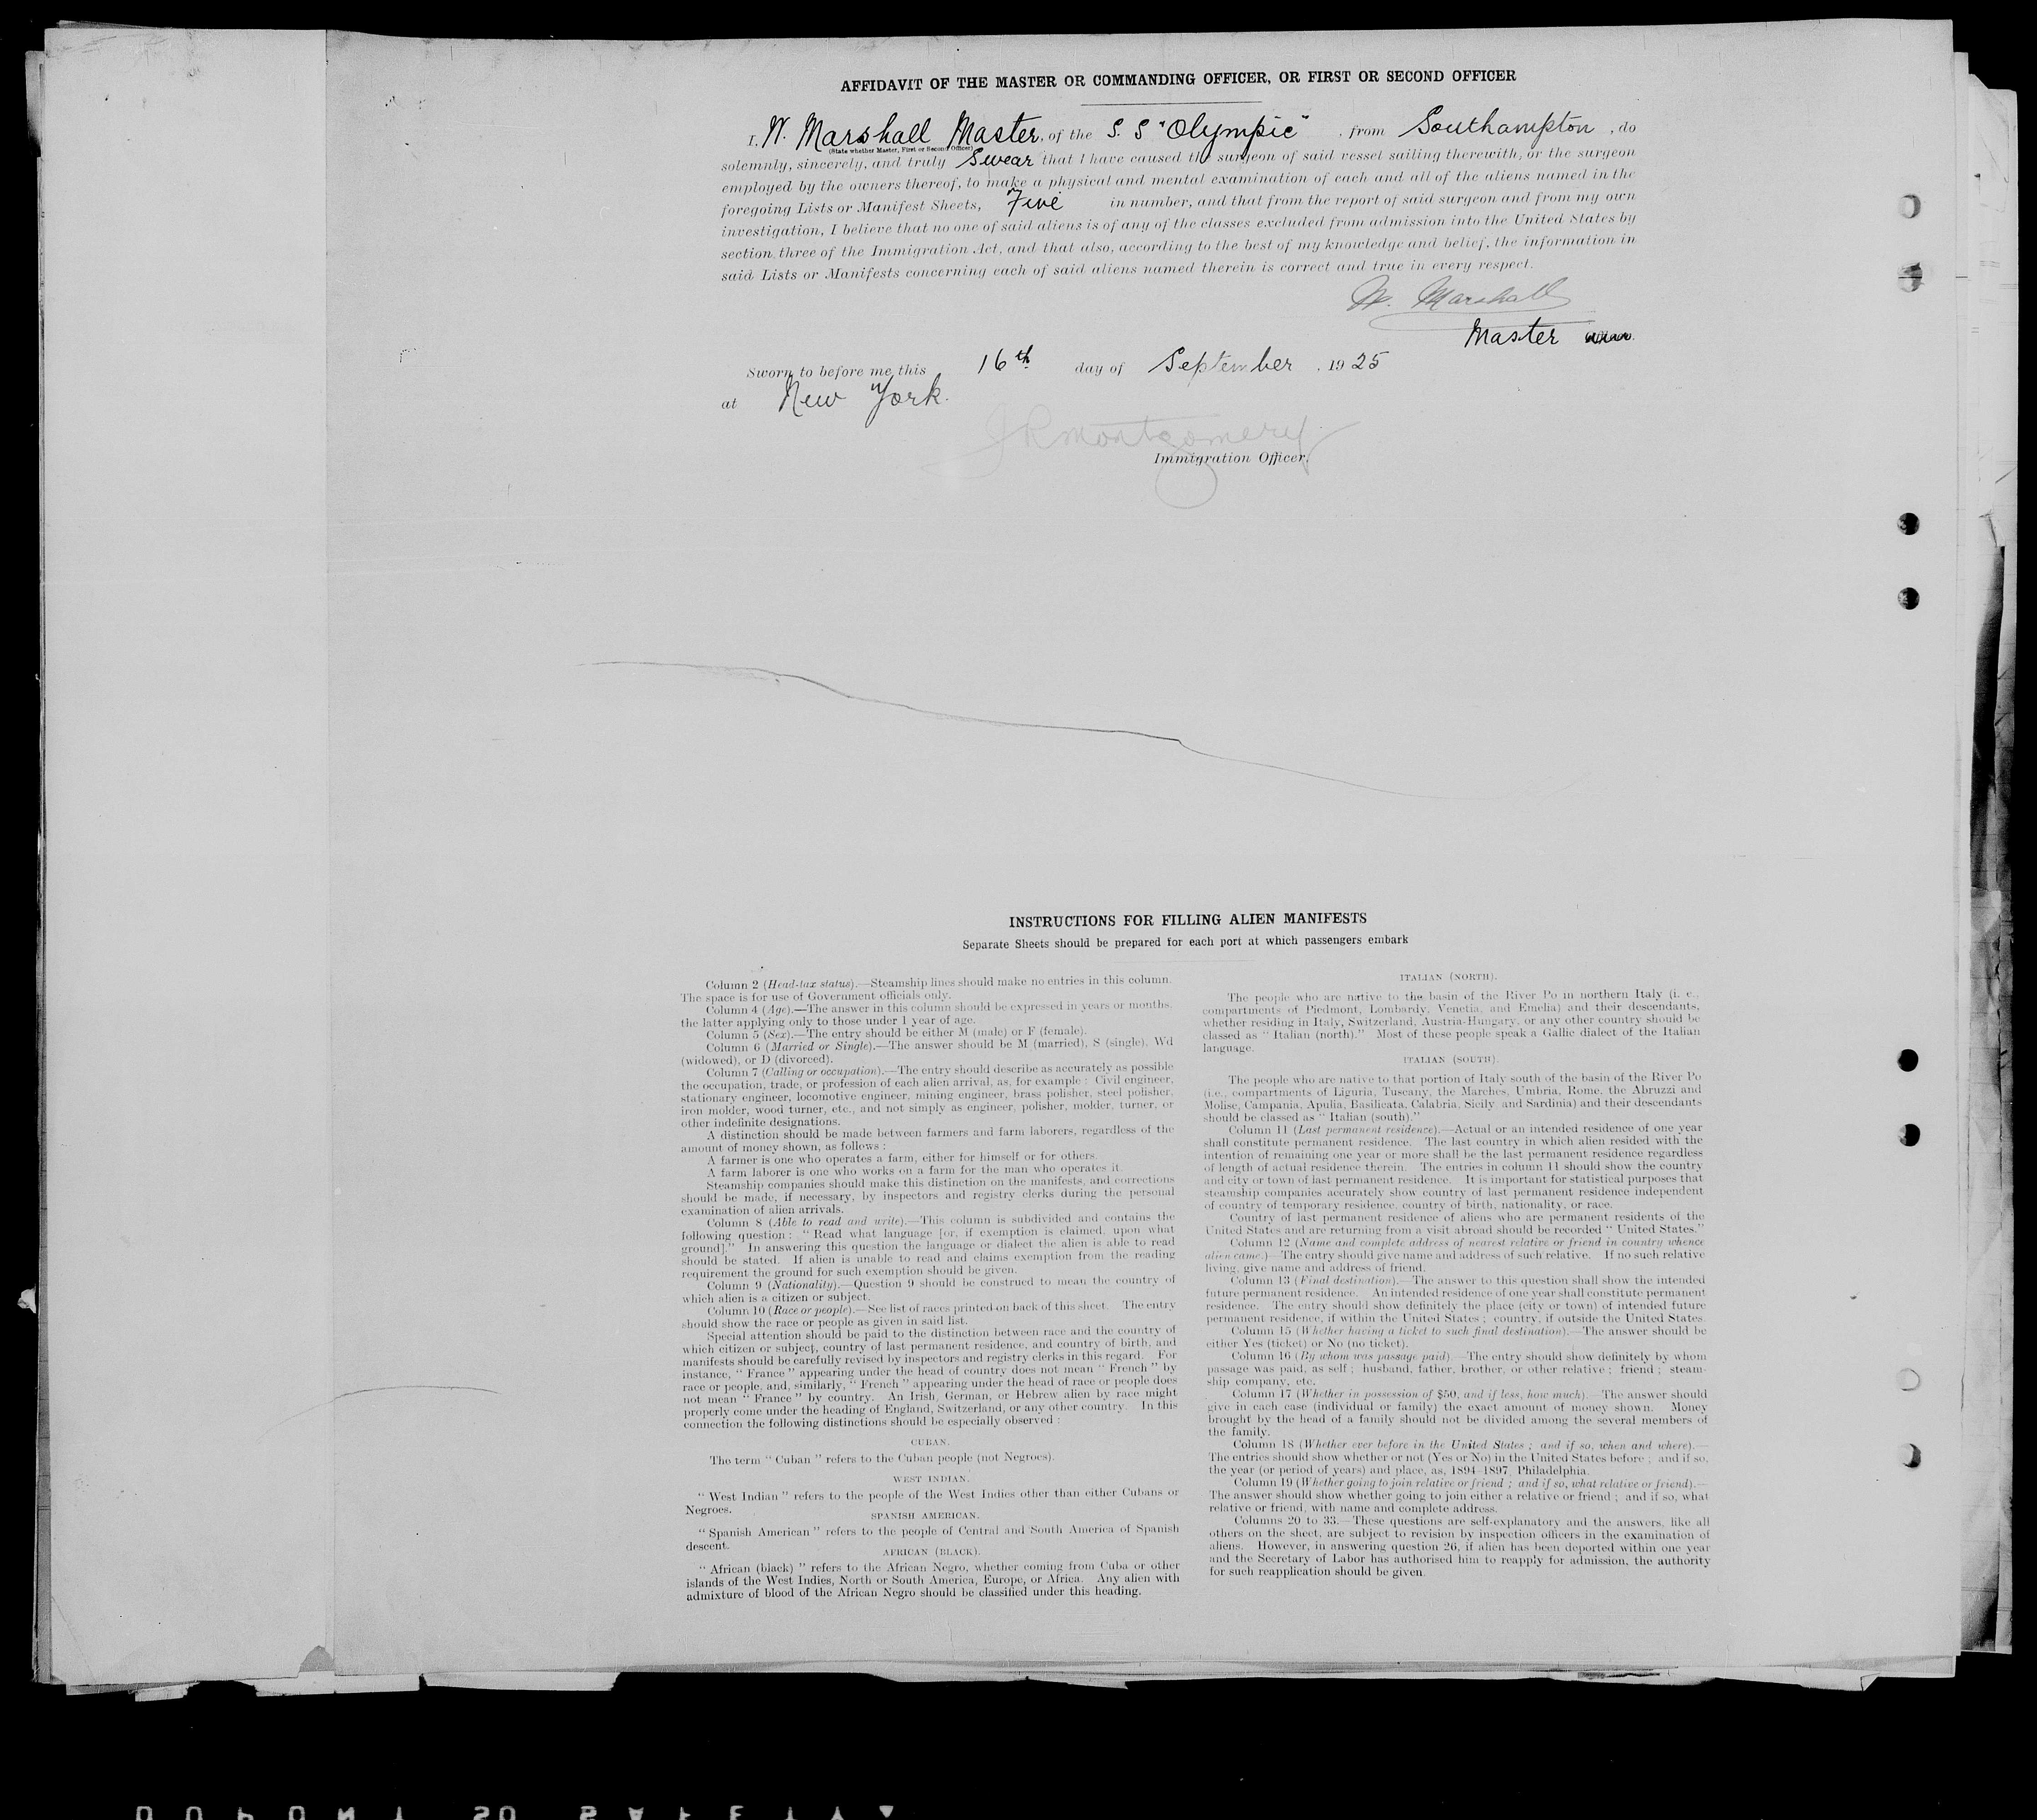 AFFIDAVIT OF THE MASTER OR COMMANDING OFFICER, OR FIRST OR SECOND OFFICER
I, W. Marshall Master, of the S. S "Olympic", from Southampton, do
(State whether Master, First or Second Officer)
solemnly, sincerely, and truly Swear that I have caused the surgeon of said vessel sailing therewith, or the surgeon
employed by the owners thereof, to make a physical and mental examination of each and all of the aliens named in the
foregoing Lists or Manifest Sheets, Five in number, and that from the report of said surgeon and from my own
investigation, I believe that no one of said aliens is of any of the classes excluded from admission into the United States by
section three of the Immigration Act, and that also, according to the best of my knowledge and belief, the information in
said Lists or Manifests concerning each of said aliens named therein is correct and true in every respect.
W. Marshall
Master
Sworn to before me this 16th day of September, 1925
at New York.
JR Montgomery
Immigration Officer.
INSTRUCTIONS FOR FILLING ALIEN MANIFESTS
Separate Sheets should be prepared for each port at which passengers embark
Column 2 (Head-tax status).—Steamship lines should make no entries in this column.
The space is for use of Government officials only.
Column 4 (Age).—The answer in this column should be expressed in years or months,
the latter applying only to those under 1 year of age.
Column 5 (Sex).—The entry should be either M (male) or F (female).
Column 6 (Married or Single).—The answer should be M (married), S (single), Wd
(widowed), or D (divorced).
Column 7 (Calling or occupation).—The entry should describe as accurately as possible
the occupation, trade, or profession of each alien arrival, as, for example : Civil engineer,
stationary engineer, locomotive engineer, mining engineer, brass polisher, steel polisher,
iron molder, wood turner, etc., and not simply as engineer, polisher, molder, turner, or
other indefinite designations.
A distinction should be made between farmers and farm laborers, regardless of the
amount of money shown, as follows :
A farmer is one who operates a farm, either for himself or for others.
A farm laborer is one who works on a farm for the man who operates it.
Steamship companies should make this distinction on the manifests, and corrections
should be made, if necessary, by inspectors and registry clerks during the personal
examination of alien arrivals.
Column 8 (Able to read and write).—This column is subdivided and contains the
following question : "Read what language [or, if exemption is claimed, upon what
ground]." In answering this question the language or dialect the alien is able to read
should be stated. If alien is unable to read and claims exemption from the reading
requirement the ground for such exemption should be given.
Column 9 (Nationality).—Question 9 should be construed to mean the country of
which alien is a citizen or subject.
Column 10 (Race or people).—See list of races printed on back of this sheet. The entry
should show the race or people as given in said list.
Special attention should be paid to the distinction between race and the country of
which citizen or subject, country of last permanent residence, and country of birth, and
manifests should be carefully revised by inspectors and registry clerks in this regard. For
instance, "France" appearing under the head of country does not mean "French" by
race or people, and, similarly, "French" appearing under the head of race or people does
not mean "France" by country. An Irish, German, or Hebrew alien by race might
properly come under the heading of England, Switzerland, or any other country. In this
connection the following distinctions should be especially observed :
CUBAN.
The term "Cuban" refers to the Cuban people (not Negroes).
WEST INDIAN.
"West Indian" refers to the people of the West Indies other than either Cubans or
Negroes.
SPANISH AMERICAN.
"Spanish American" refers to the people of Central and South America of Spanish
descent.
AFRICAN (BLACK).
"African (black)" refers to the African Negro, whether coming from Cuba or other
islands of the West Indies, North or South America, Europe, or Africa. Any alien with
admixture of blood of the African Negro should be classified under this heading.
ITALIAN (NORTH).
The people who are native to the basin of the River Po in northern Italy (i. e.,
compartments of Piedmont, Lombardy, Venetia, and Emelia) and their descendants,
whether residing in Italy, Switzerland, Austria-Hungary, or any other country should be
classed as "Italian (north)." Most of these people speak a Gallic dialect of the Italian
language.
ITALIAN (SOUTH).
The people who are native to that portion of Italy south of the basin of the River Po
(i.e., compartments of Liguria, Tuscany, the Marches, Umbria, Rome, the Abruzzi and
Molise, Campania, Apulia, Basilicata, Calabria, Sicily and Sardinia) and their descendants
should be classed as "Italian (south)."
Column 11 (Last permanent residence).—Actual or an intended residence of one year
shall constitute permanent residence. The last country in which alien resided with the
intention of remaining one year or more shall be the last permanent residence regardless
of length of actual residence therein. The entries in column 11 should show the country
and city or town of last permanent residence. It is important for statistical purposes that
steamship companies accurately show country of last permanent residence independent
of country of temporary residence, country of birth, nationality, or race.
Country of last permanent residence of aliens who are permanent residents of the
United States and are returning from a visit abroad should be recorded "United States."
Column 12 (Name and complete address of nearest relative or friend in country whence
alien came.)—The entry should give name and address of such relative. If no such relative
living, give name and address of friend.
Column 13 (Final destination).—The answer to this question shall show the intended
future permanent residence. An intended residence of one year shall constitute permanent
residence. The entry should show definitely the place (city or town) of intended future
permanent residence, if within the United States ; country, if outside the United States.
Column 15 (Whether having a ticket to such final destination).—The answer should be
either Yes (ticket) or No (no ticket).
Column 16 (By whom was passage paid).—The entry should show definitely by whom
passage was paid, as self ; husband, father, brother, or other relative ; friend ; steam-
ship company, etc.
Column 17 (Whether in possession of $50, and if less, how much).—The answer should
give in each case (individual or family) the exact amount of money shown. Money
brought by the head of a family should not be divided among the several members of
the family.
Column 18 (Whether ever before in the United States ; and if so, when and where).—
The entries should show whether or not (Yes or No) in the United States before ; and if so,
the year (or period of years) and place, as, 1894-1897, Philadelphia.
Column 19 (Whether going to join relative or friend ; and if so, what relative or friend).—
The answer should show whether going to join either a relative or friend ; and if so, what
relative or friend, with name and complete address.
Columns 20 to 33.—These questions are self-explanatory and the answers, like all
others on the sheet, are subject to revision by inspection officers in the examination of
aliens. However, in answering question 26, if alien has been deported within one year
and the Secretary of Labor has authorised him to reapply for admission, the authority
for such reapplication should be given.